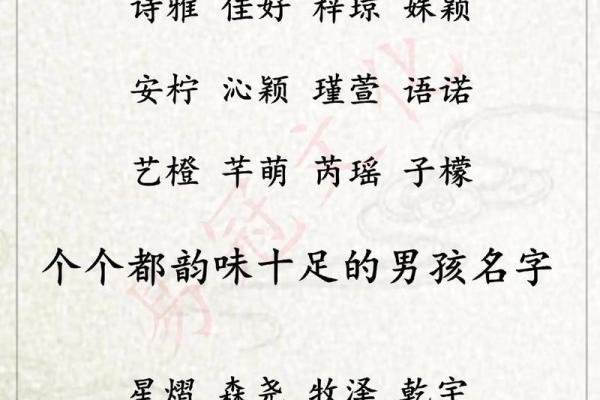 诗雅 佳好 梓琼 姝颖
安柠 沁颖 瑾萱 语诺
艺橙 芊萌 芮瑶 子檬
个个都韵味十足的男孩名字
星熠 森尧 牧泽 乾宇
易冠文化